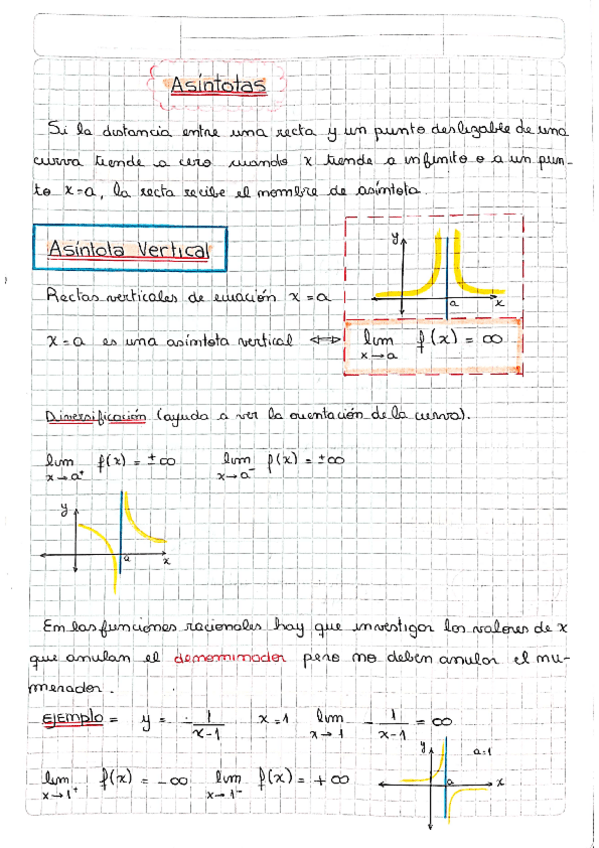 Asíntotas
Si la distancia entre una recta y un punto deslizable de una
curva tiende a cero cuando x tiende a infinito o a un pun-
to x=a, la recta recibe el nombre de asíntota.
Asíntota Vertical
y
a
x
Rectas verticales de ecuación x=a
x=a es una asíntota vertical ⟺ lim f(x) = ∞
x→a
Diversificación (ayuda a ver la orientación de la curva).
lim f(x) = ±∞ lim f(x) = ±∞
x→a⁺ x→a⁻
y
a
x
En las funciones racionales hay que investigar los valores de x
que anulan el denominador pero no deben anular el nu-
merador.
EJEMPLO = y = -1/(x-1) x=1 lim -1/(x-1) = ∞
x→1
y
a=1
lim f(x) = -∞ lim f(x) = +∞
x→1⁺ x→1⁻
a
x